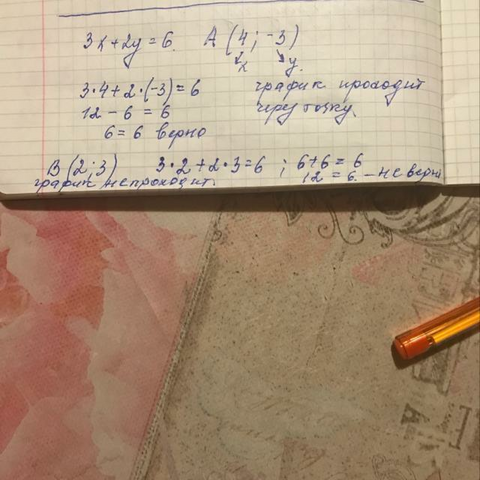 3x+2y=6. A(4; -3)
x y
3·4+2·(-3)=6 график проходит
12-6=6 через точку.
6=6 верно
B(2;3) 3·2+2·3=6 ; 6+6=6
график не проходит. 12=6. - не верно